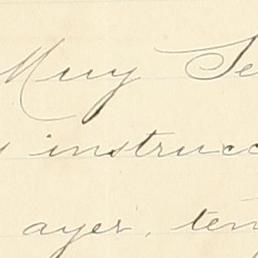 Muy Se
y instrucc
ayer, ten